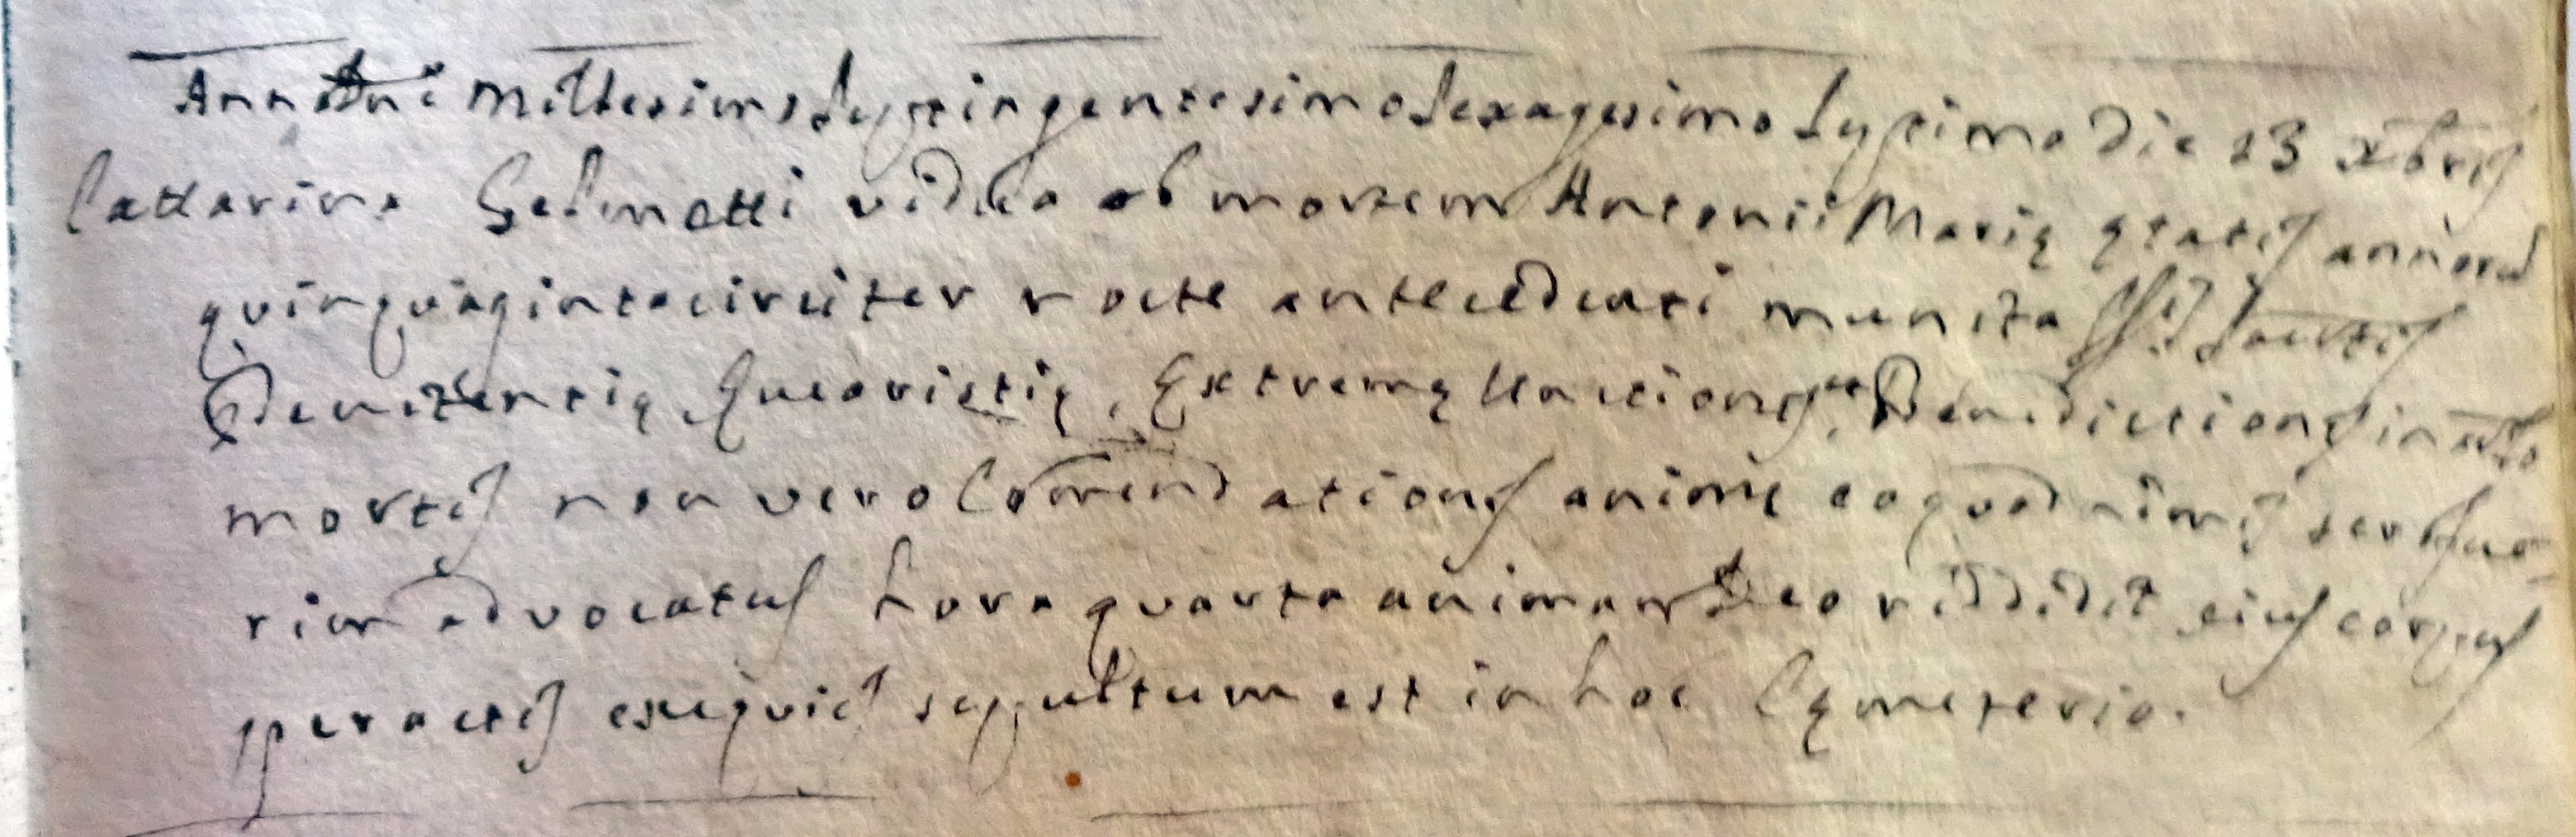 Anno Dni Millesimo Septingentesimo Sexagesimo Septimo Die 23 Xbris
Cattarina Gelmetti vidua ob mortem Antonii Marię ętatis annorū
quinquaginta circiter nocte antecedenti munita SS. Sacrtis
Penitentię, Eucaristię, Extremę Unctionis, et Benedictionis in arto
mortis non vero Comendationis animę eo quod nimis ser
advocatus hora quarta animam Deo reddidit eius corpus
peractis exequiis sepultum est in hoc Cęmeterio.